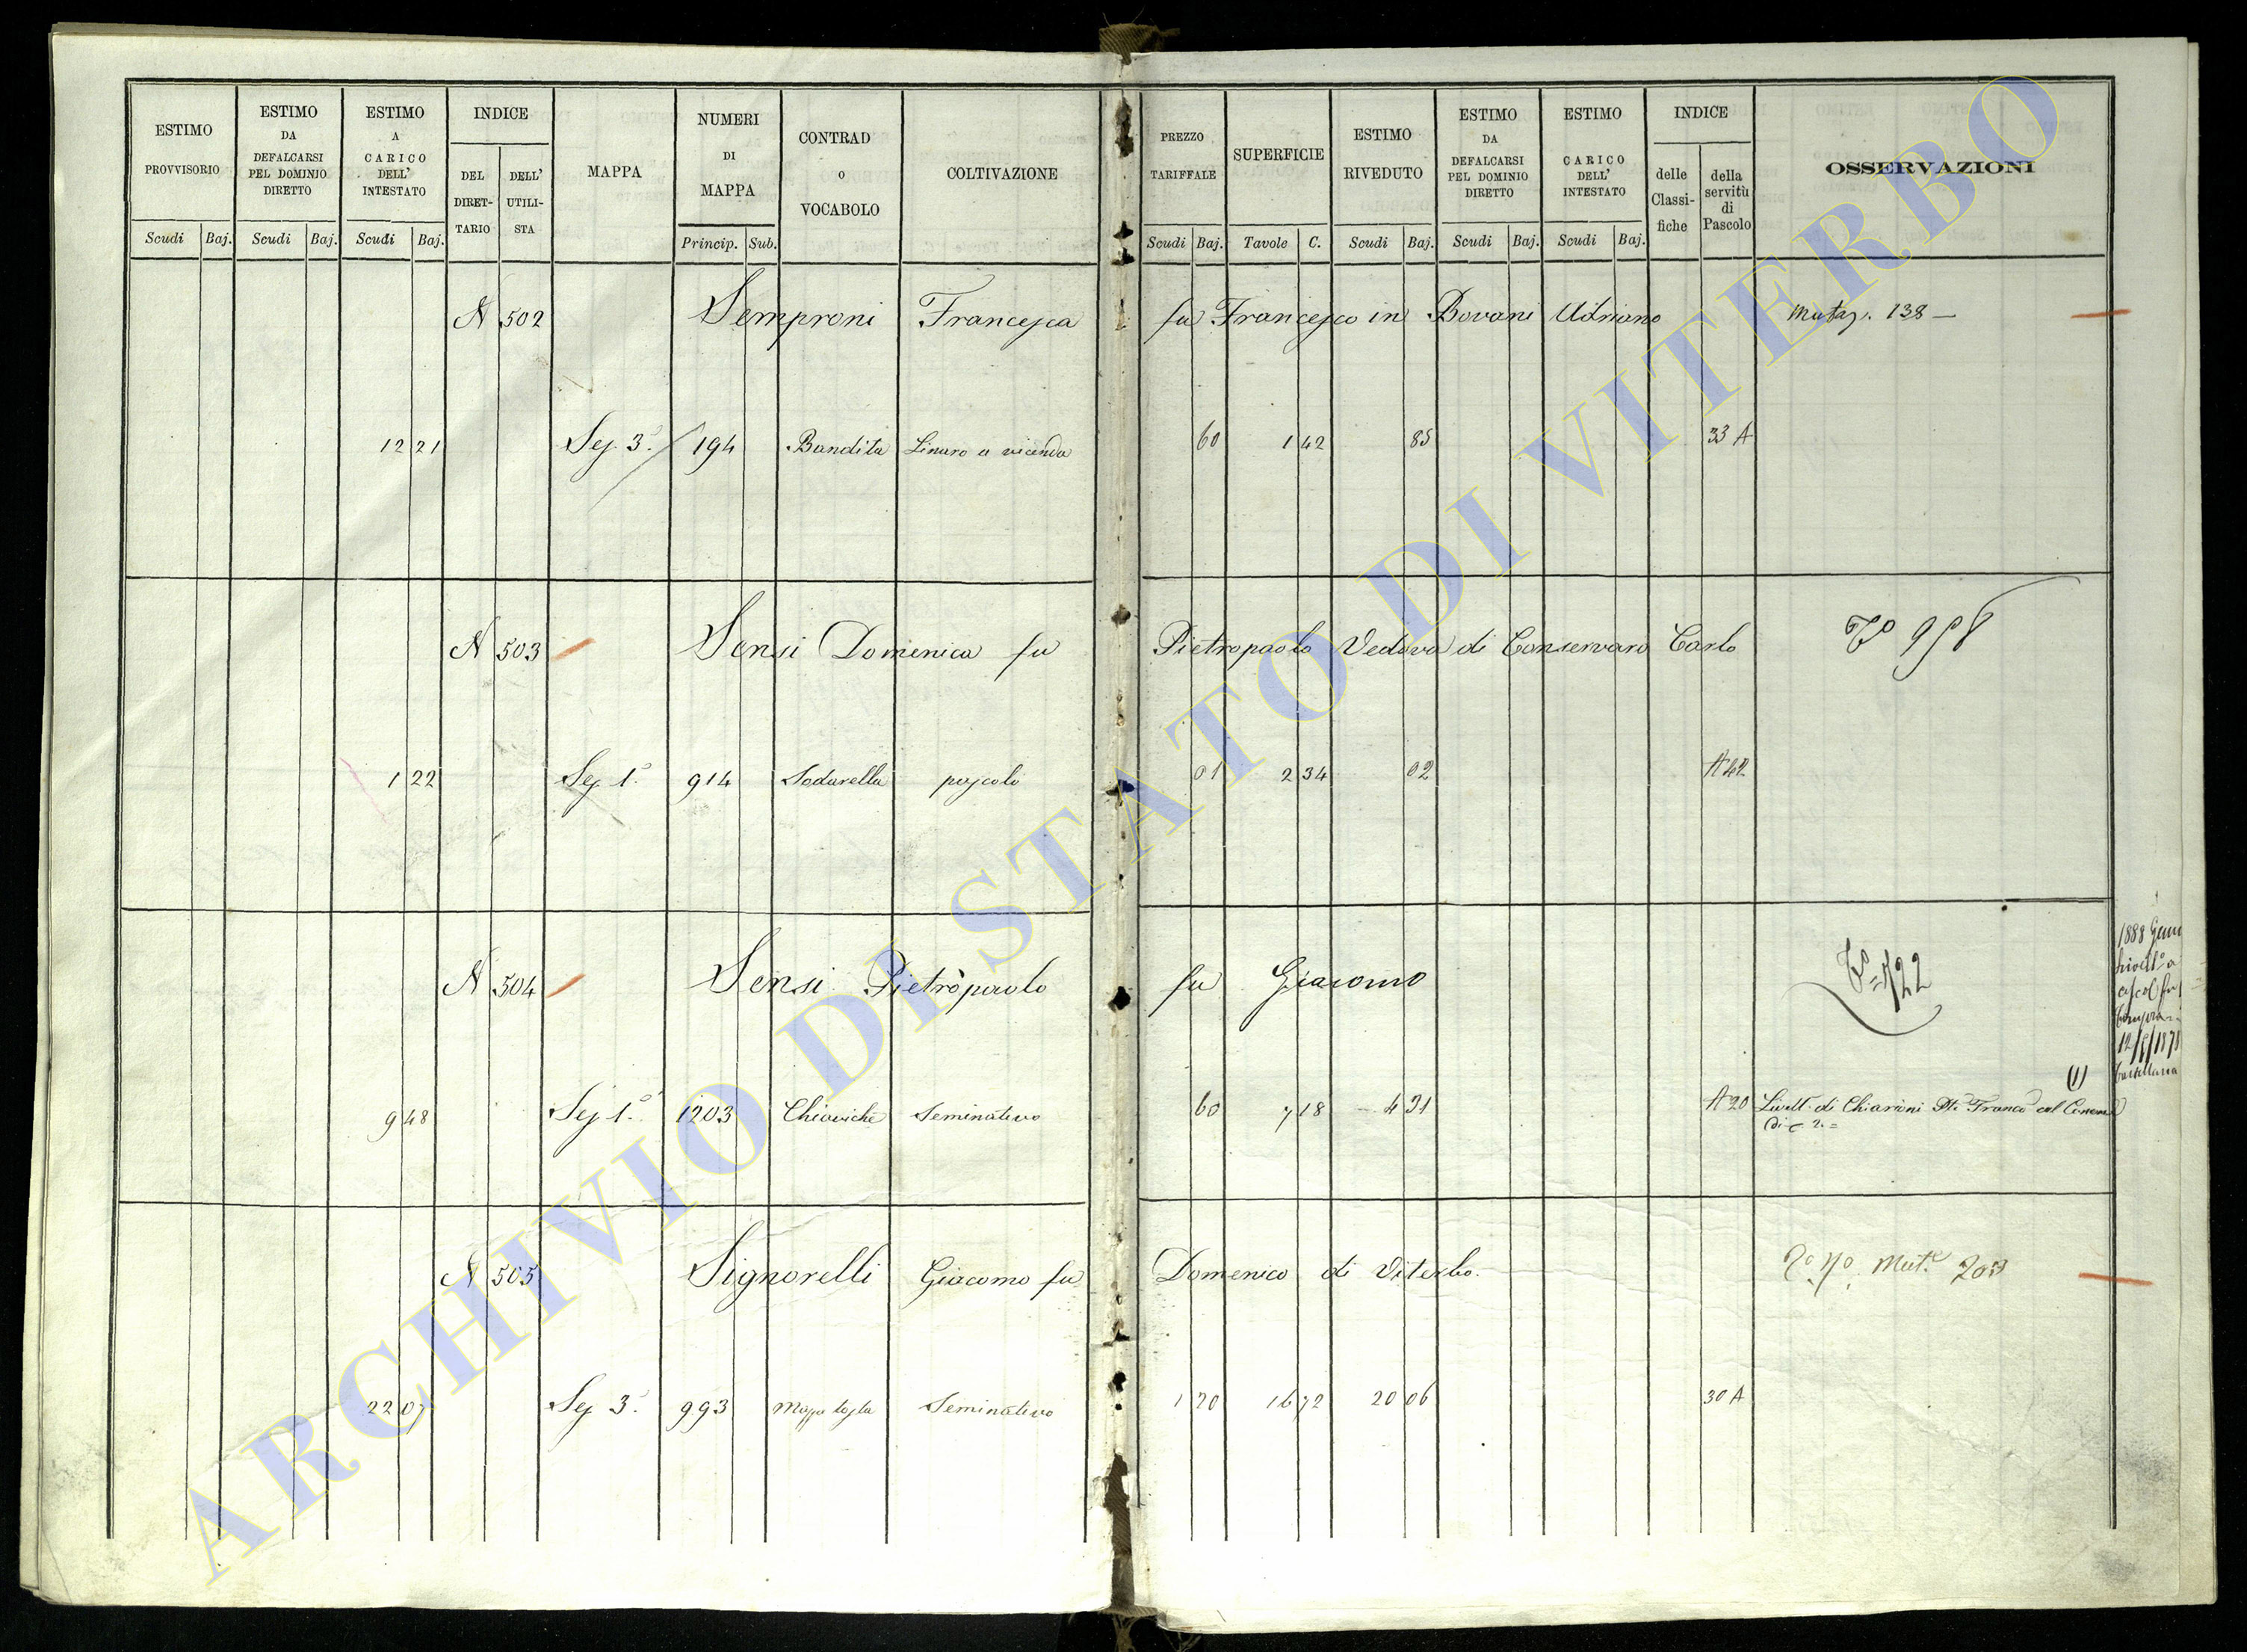 ESTIMO PROVVISORIO
ESTIMO DA DEFALCARSI PEL DOMINIO DIRETTO
ESTIMO A CARICO DELL' INTESTATO
INDICE
DEL DIRET-TARIO
DELL' UTILI-STA
MAPPA
NUMERI DI MAPPA
CONTRAD O VOCABOLO
COLTIVAZIONE
PREZZO TARIFFALE
SUPERFICIE
ESTIMO RIVEDUTO
ESTIMO DA DEFALCARSI PEL DOMINIO DIRETTO
ESTIMO CARICO DELL' INTESTATO
INDICE
delle Classi-fiche
della servitù di Pascolo
OSSERVAZIONI
Scudi Baj. Scudi Baj. Scudi Baj. Princip. Sub. Scudi Baj. Tavole C. Scudi Baj. Scudi Baj. Scudi Baj.
N 502 Semproni Francesca fu Francesco in Bovani Adriano Mutaz. 138 —
12 21 Sez 3ª 194 Bandita Linaro a vicenda 60 1 42 85 33 A
N 503 Sensi Domenica fu Pietropaolo Vedova di Conservaro Carlo
1 22 Sez 1ª 914 Sodarella pascolo 01 2 34 02 A 42
N 504 Sensi Pietropaolo fu Giacomo
9 48 Sez 1ª 1203 Chiaviche Seminativo 60 7 18 4 31 A 20 Livell. di Chiarini Franco al
(1)
1888
12/6/1878
N 505 Signorelli Giacomo fu Domenico di Viterbo.
22 07 Sez 3ª 993 Seminativo 1 20 16 72 20 06 30 A
ARCHIVIO DI STATO DI VITERBO